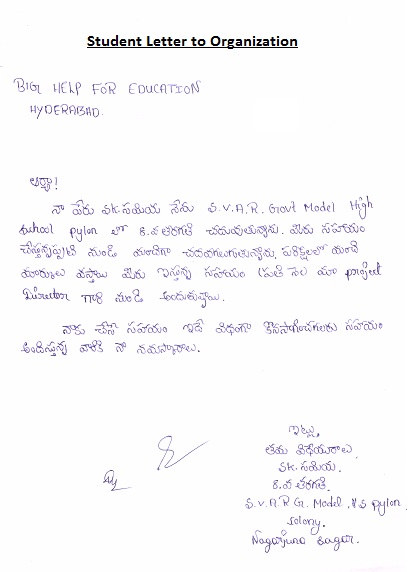 Student Letter to Organization
BIG HELP FOR EDUCATION
HYDERABAD.
ఆర్యా!
నా పేరు SK. సమియ నేను S.V.A.R. Govt Model High
School pylon లో 8.వ తరగతి చదువుతున్నాను. మీరు సహాయం
చేస్తున్నప్పటి నుండి మంచిగా చదవగలుగుతున్నాను, పరీక్షలలో మంచి
మార్కులు వస్తాయి మీరు ఇస్తున్న సహాయం ప్రతి నెల మా project
Director గారి నుండి అందుతున్నాయి.
నాకు చేసే సహాయం ఇదే విధంగా కొనసాగించగలరు సహాయం
అందిస్తున్న వారికి నా నమస్కారాలు.
ఇట్లు,
తమ విధేయురాలు,
SK. సమియ.
8.వ తరగతి.
S.V.A.R G. Model .H.S pylon.
colony.
Nagarjuna sagar.